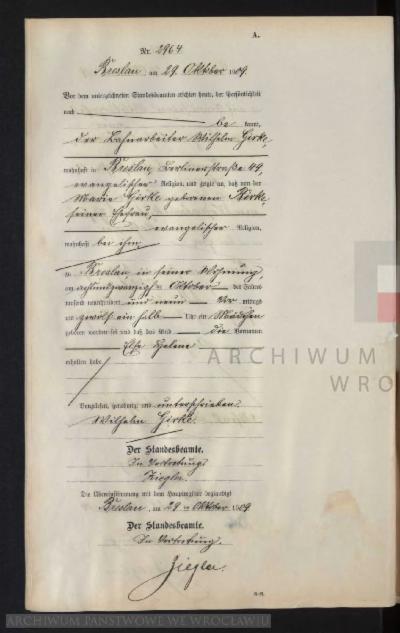 A.
Nr. 2964
Breslau, am 29. Oktober 1909.
Vor dem unterzeichneten Standesbeamten erschien heute, der Persönlichkeit
nach
be kannt,
der Bahnarbeiter Wilhelm Girke,
wohnhaft in Breslau, Berlinerstraße 49,
evangelischer Religion, und zeigte an, daß von der
Marie Girke geborenen
seiner Ehefrau,
evangelischer Religion,
wohnhaft bei ihm,
zu Breslau, in seiner Wohnung,
am achtundzwanzigsten Oktober des Jahres
tausend neunhundert und neun Vor mittags
um zwölf ein halb Uhr ein Mädchen
geboren worden sei und daß das Kind die Vornamen
Else Helene
erhalten habe
Vorgelesen, genehmigt und unterschrieben.
Wilhelm Girke.
Der Standesbeamte.
In Vertretung
Ziegler.
Die Übereinstimmung mit dem Hauptregister beglaubigt
Breslau, am 29 ten Oktober 1909
Der Standesbeamte.
In Vertretung.
Ziegler.
ARCHIWUM
WRO
ARCHIWUM PAŃSTWOWE WE WROCŁAWIU